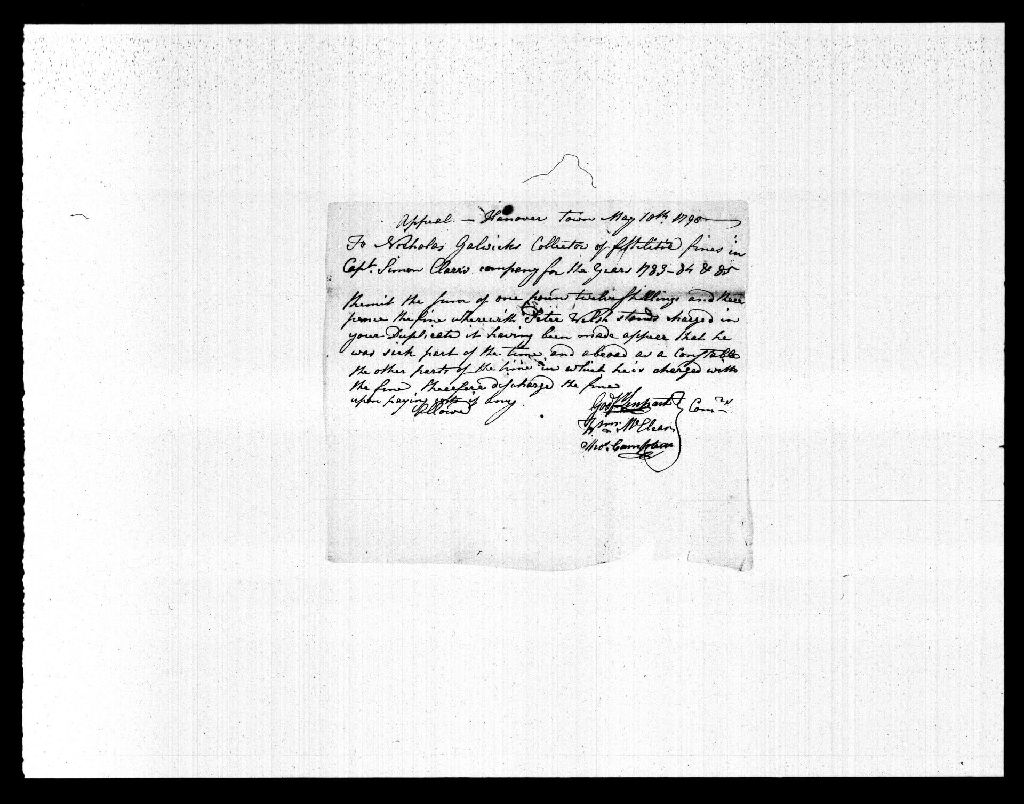 Appeal — Hanover town May 10th 1790
To Nicholas Gelwicks Collector of fines in
Capt. Simon Clear's company for the Years 1783-84 & 85
Remit the sum of one poun twelve shillings and three
pence the fine wherewith Peter Welsh stands charged in
your Duplicate it having been made appear that he
was sick part of the time and abroad as a Constable
the other part of the time in which he is charged with
the fine therefore discharge the fine
upon paying if any
allowed
Com.rs